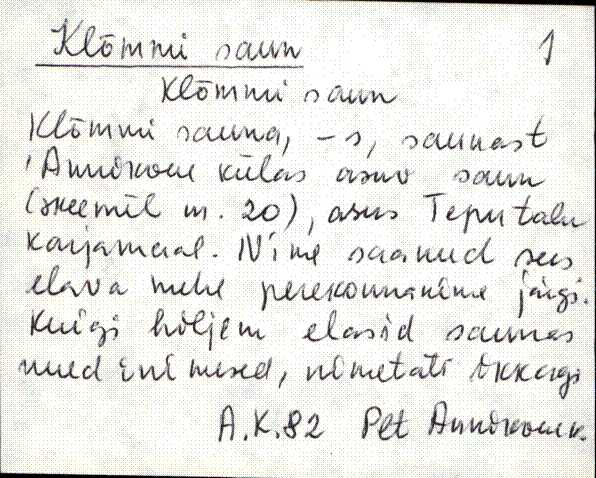 Klõmmi saun 1
Klõmmi saun
Klõmmi sauna, -s, saunast
Annikoru külas asuv saun
(skeemil nr. 20), asus Tepu talu
karjamaal. Nime saanud sees
elava mehe perekonnanime järgi.
Kuigi hiljem elasid saunas
muud inimesed, nimetati ikkagi
A.K.82 Pst Annikoru k.